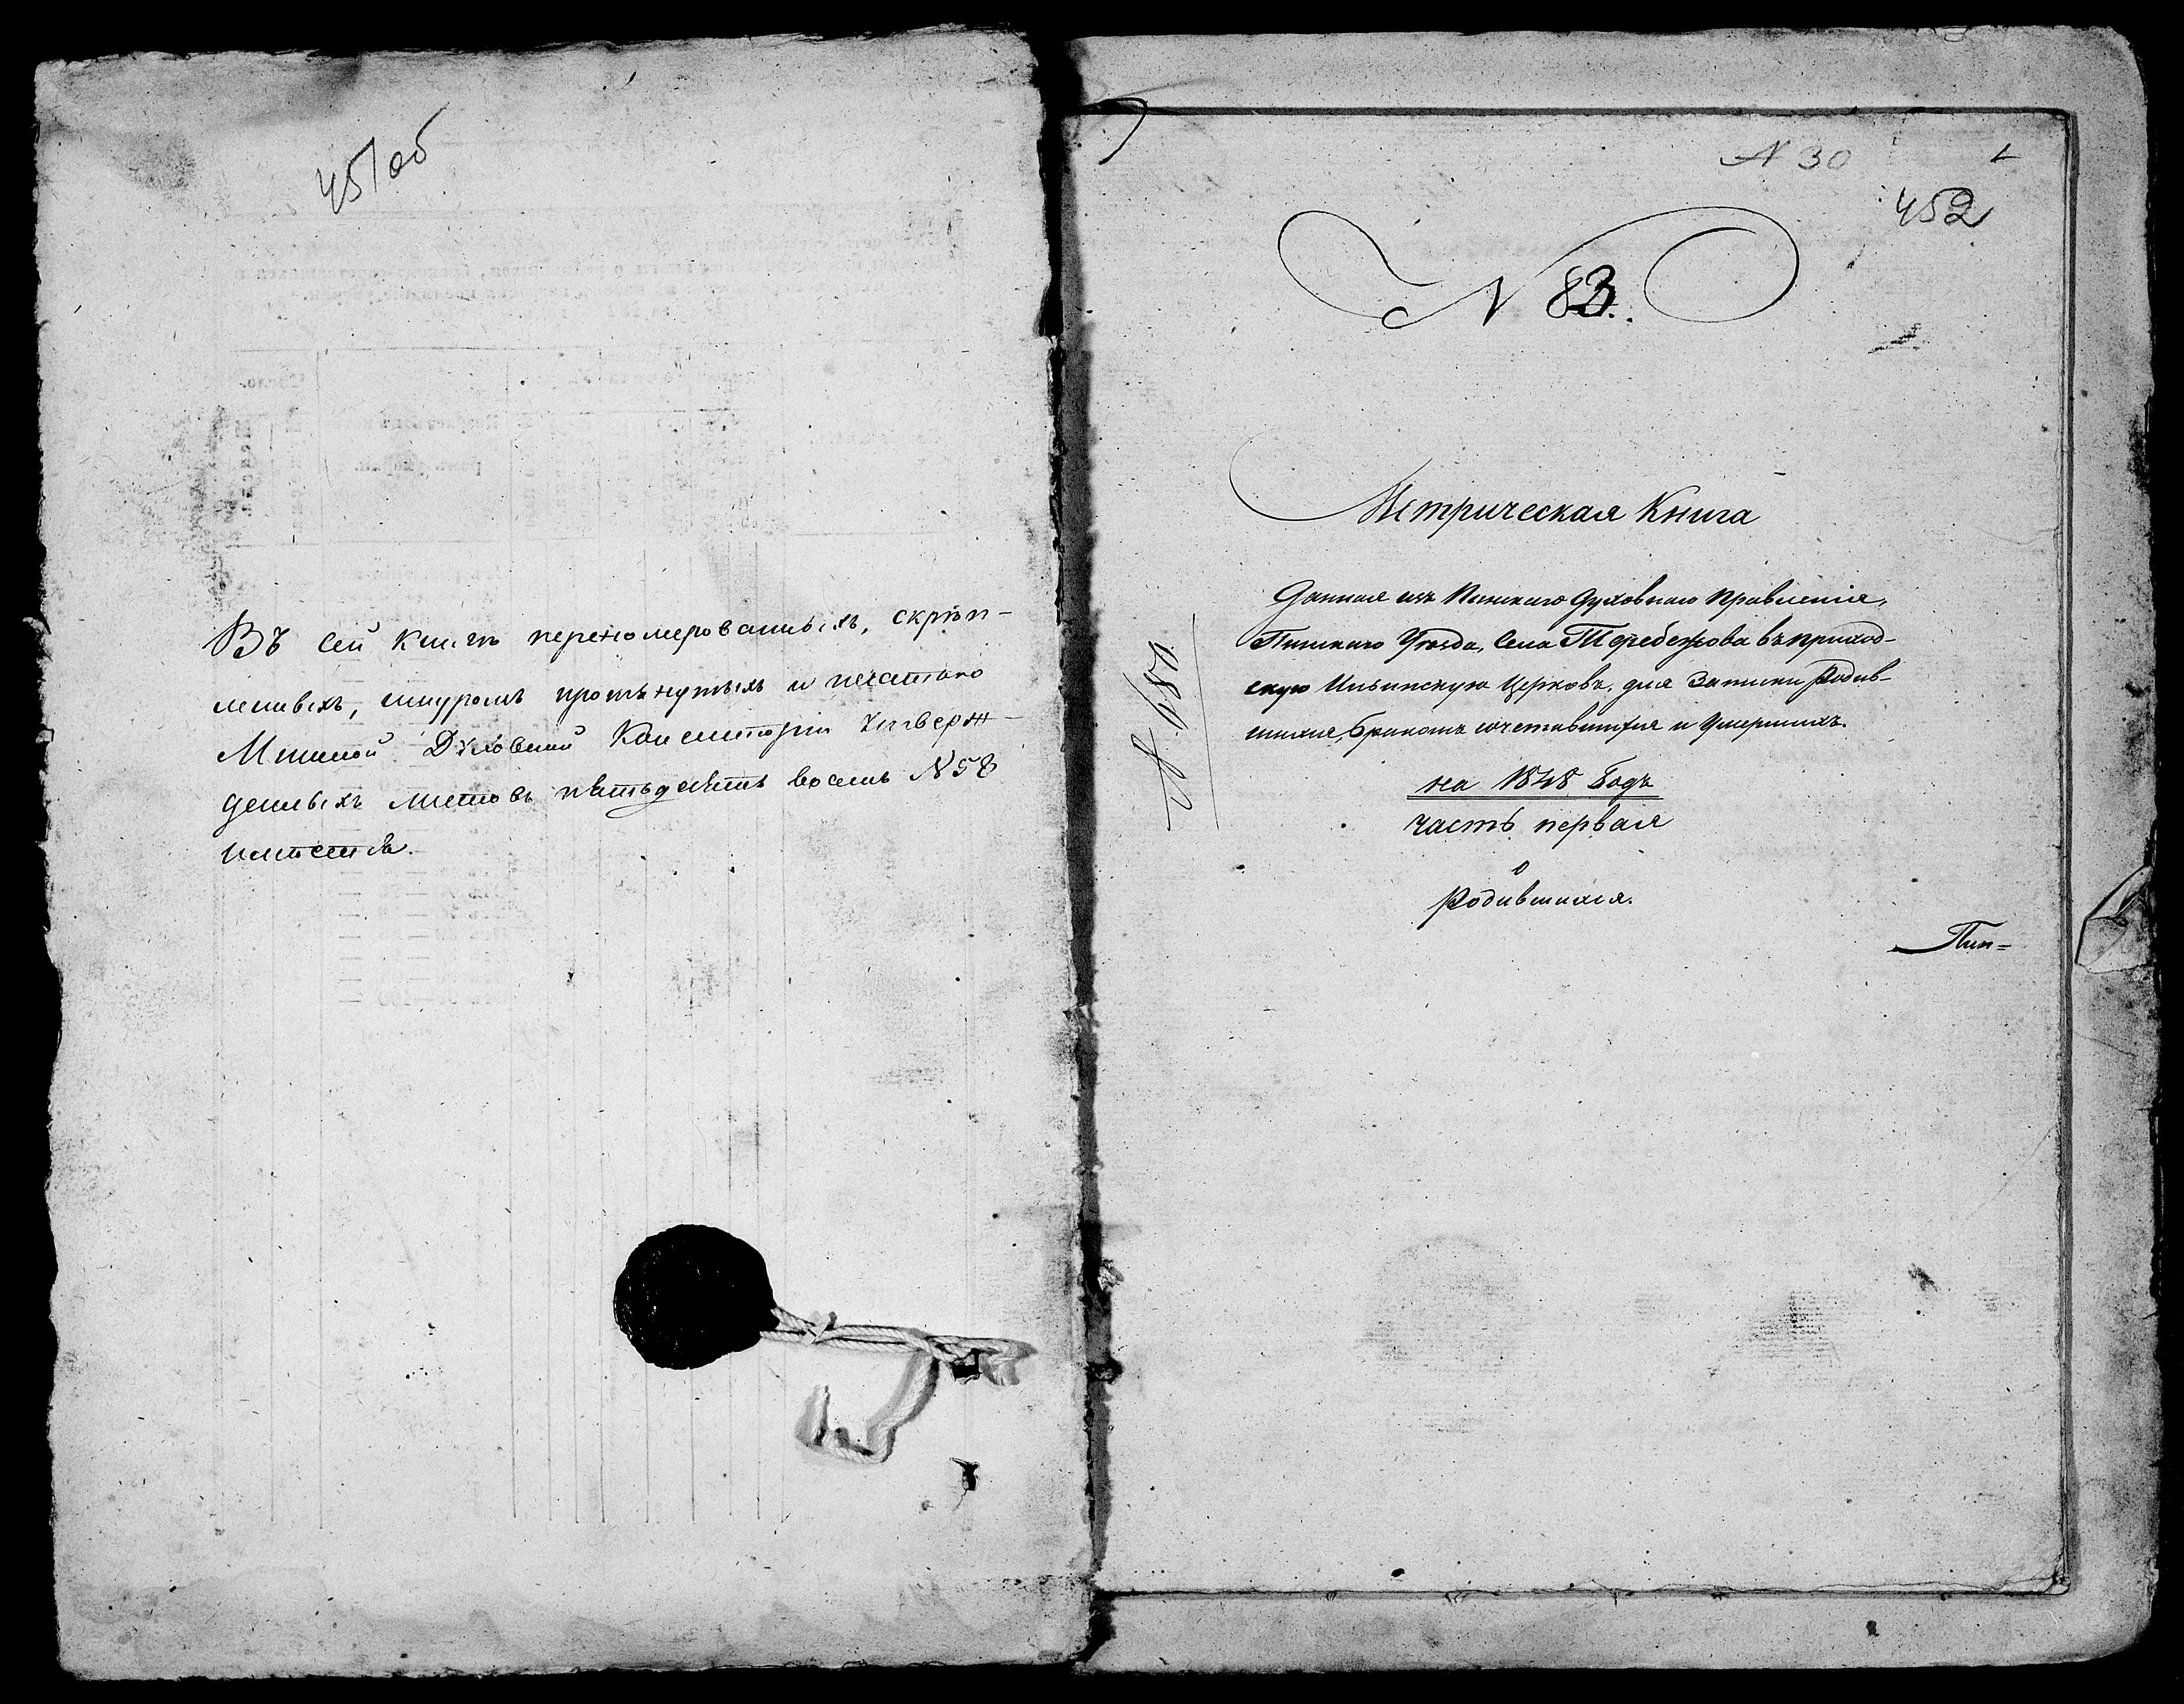 451об
Въ сей книгѣ переномерованныхъ, скрѣп-
ленныхъ, шнуромъ протянутыхъ и печатью
Минской Духовной Консисторіи утверж-
денныхъ листовъ пятьдесятъ восемь N 58
N 30
1
452
N 83.
Метрическая Книга
Данная изъ Пинскаго Духовнаго Правленія,
Пинскаго Уѣзда, Села Теребежова въ приход-
скую Ильинскую Церковь, для Записки Родив-
шихся, Бракомъ сочетавшихся и Умершихъ.
на 1848 Годъ
часть первая
о
Родившихся.
Пин=